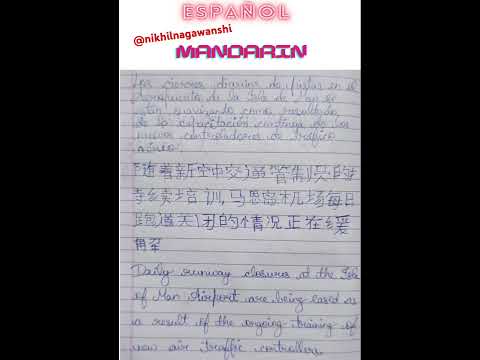 ESPAÑOL
@nikhilnagawanshi
MANDARIN
Los cierres diarios de pistas en el
aeropuerto de la Isla de Man se
están suavizando como resultado
de la capacitación continua de los
nuevos controladores de tráfico
aéreo.
随着新空中交通管制员的
持续培训,马恩岛机场每日
跑道关闭的情况正在缓
解
Daily runway closures at the Isle
of Man Airport are being eased as
a result of the ongoing training of
new air traffic controllers.